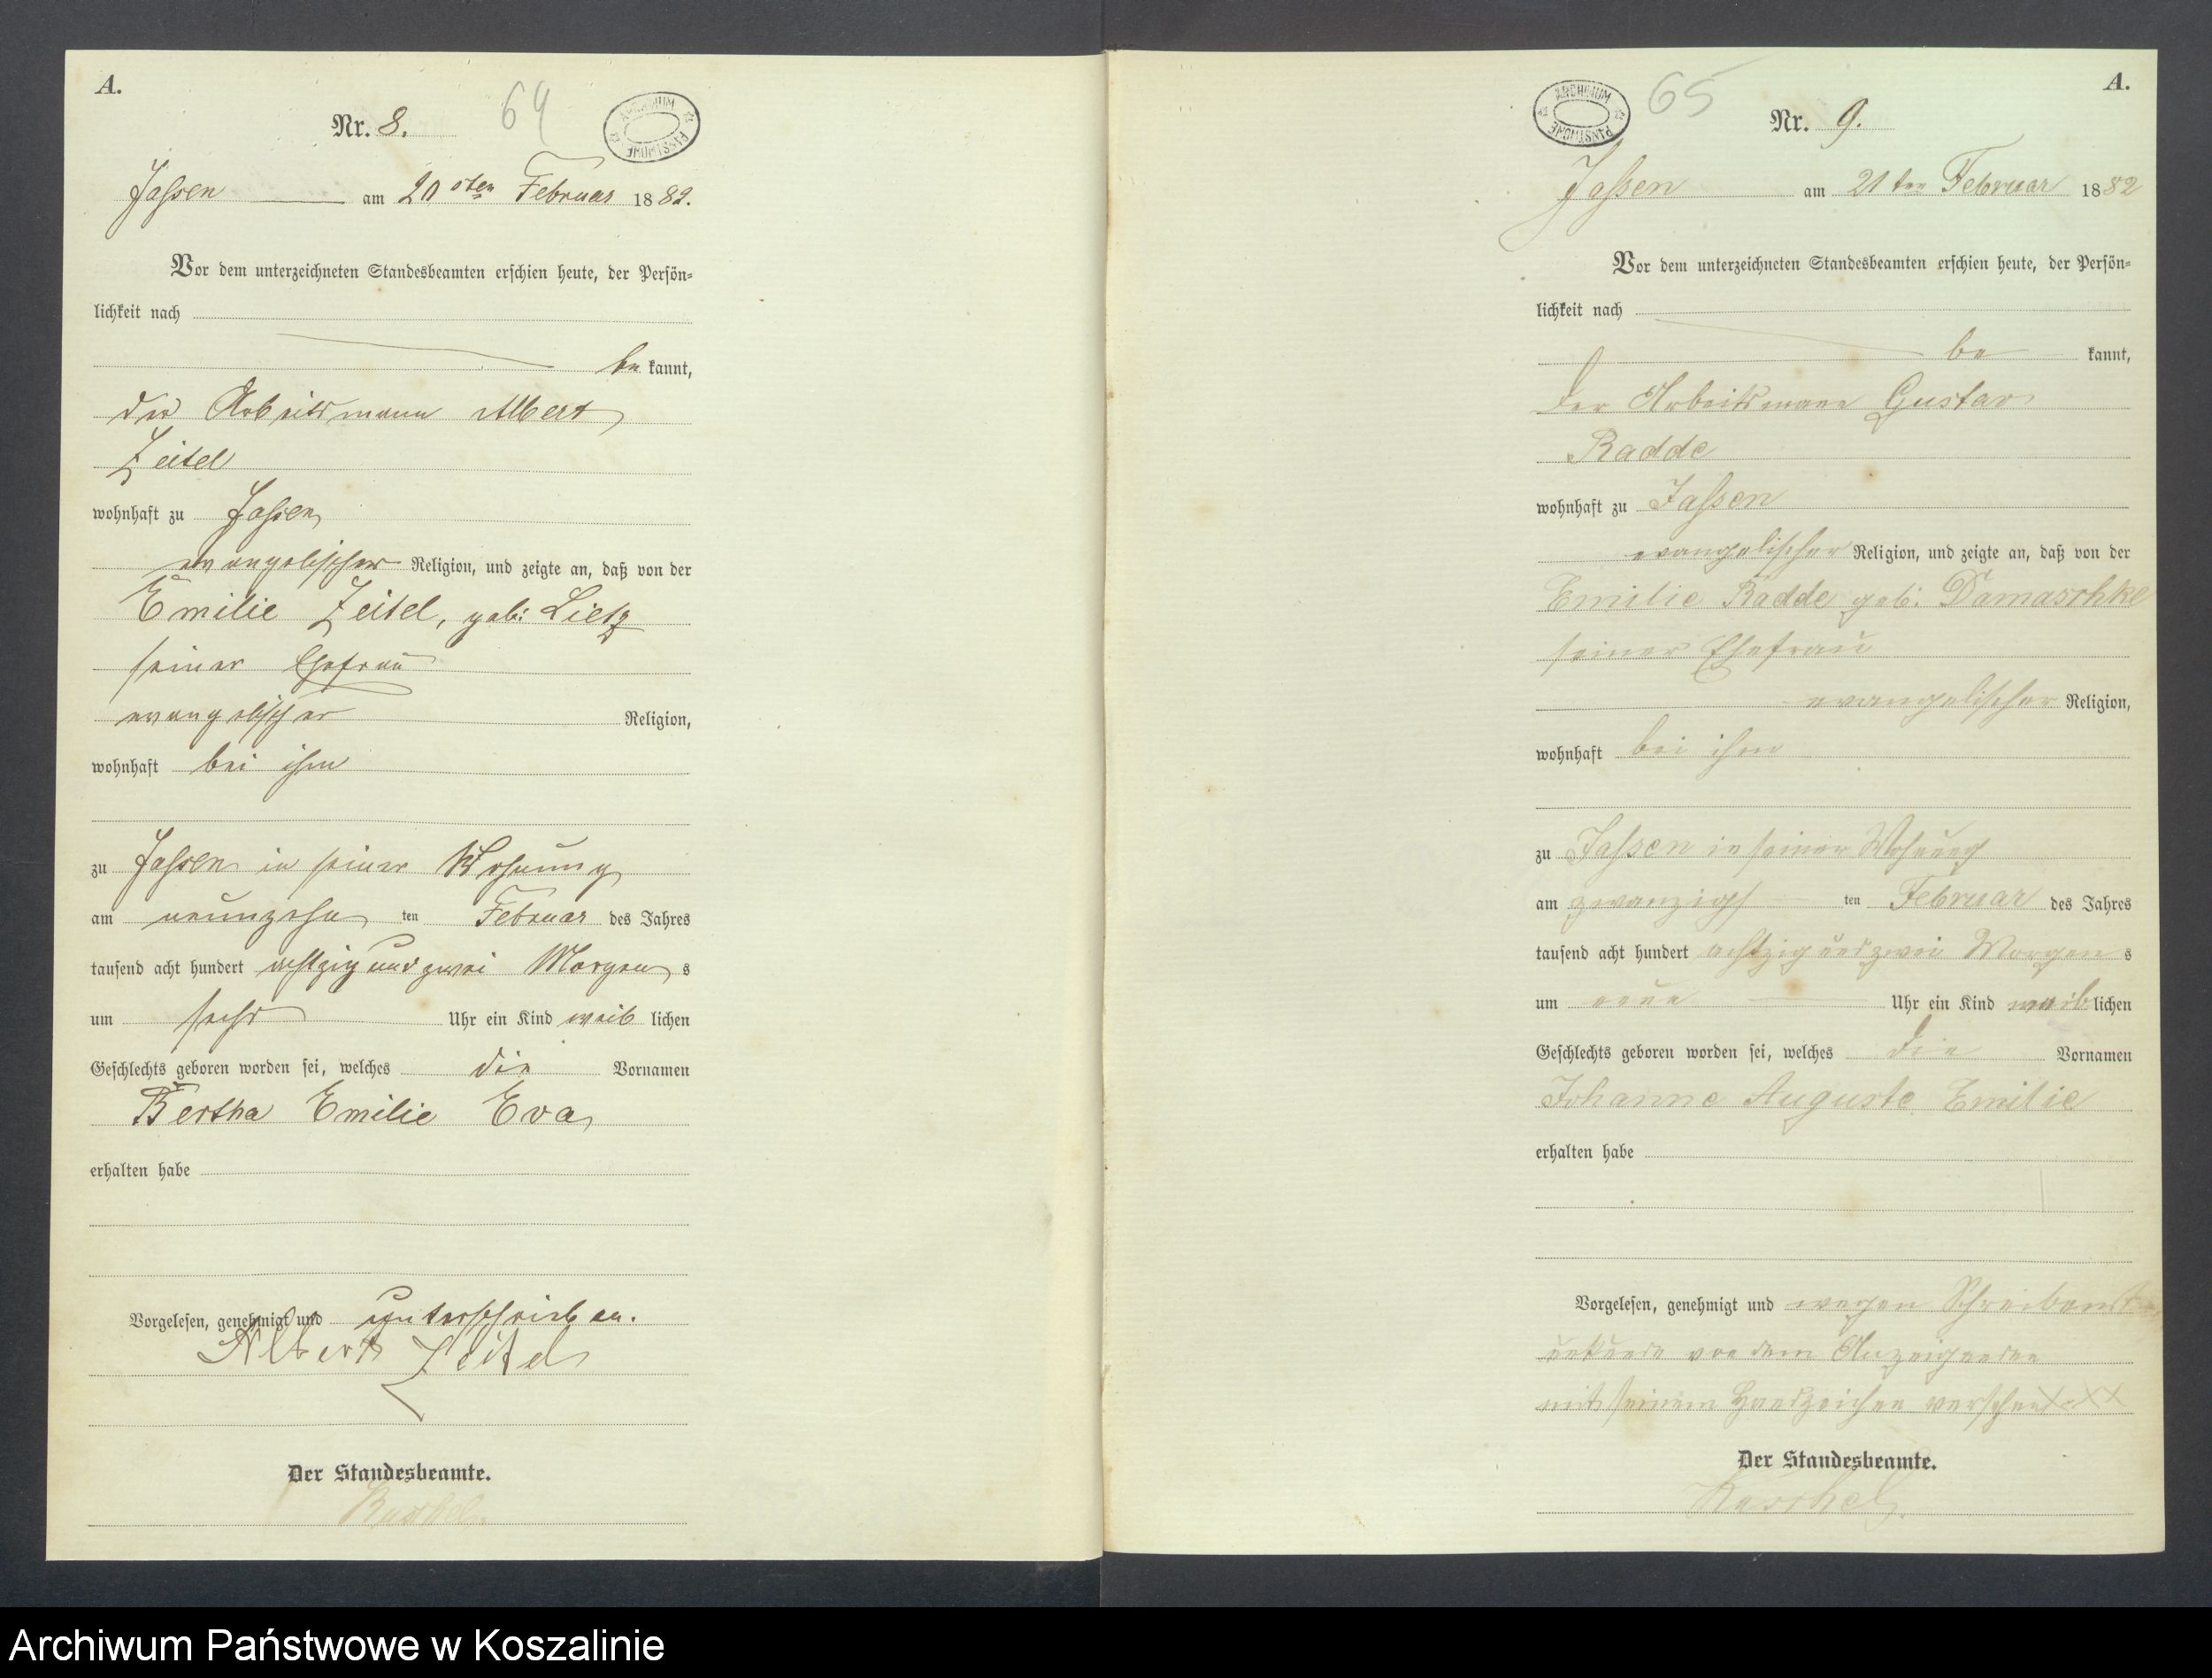 A.
Nr. 8.
64
ARCHIWUM PAŃSTWOWE
Jassen am 20sten Februar 1882.
Vor dem unterzeichneten Standesbeamten erschien heute, der Persön-
lichkeit nach
bekannt,
der Arbeitsmann Albert
Zeitel
wohnhaft zu Jassen
evangelischer Religion, und zeigte an, daß von der
Emilie Zeitel, geb: Lietz
seiner Ehefrau
evangelischer Religion,
wohnhaft bei ihm
zu Jassen in seiner Wohnung
am neunzehn ten Februar des Jahres
tausend acht hundert achtzig und zwei Morgens
um sechs Uhr ein Kind weiblichen
Geschlechts geboren worden sei, welches die Vornamen
Bertha Emilie Eva
erhalten habe
Vorgelesen, genehmigt und unterschrieben.
Albert Zeitel
Der Standesbeamte.
A.
ARCHIWUM PAŃSTWOWE
65
Nr. 9.
Jassen am 21ten Februar 1882
Vor dem unterzeichneten Standesbeamten erschien heute, der Persön-
lichkeit nach
bekannt,
der Arbeitsmann Gustav
Radde
wohnhaft zu Jassen
evangelischer Religion, und zeigte an, daß von der
Emilie Radde geb: Damaschke
seiner Ehefrau
evangelischer Religion,
wohnhaft bei ihm
zu Jassen in seiner Wohnung
am zwanzigs ten Februar des Jahres
tausend acht hundert achtzig und zwei Morgens
um neun Uhr ein Kind weiblichen
Geschlechts geboren worden sei, welches die Vornamen
Johanne Auguste Emilie
erhalten habe
Vorgelesen, genehmigt und wegen Schreibens
unkunde von dem Anzeigenden
mit seinem Handzeichen versehen XXX
Der Standesbeamte.
Archiwum Państwowe w Koszalinie